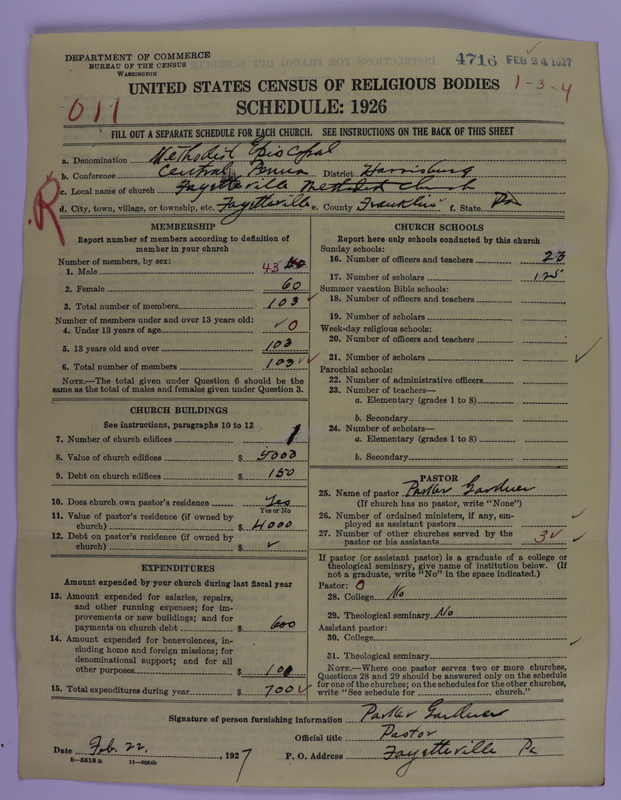 DEPARTMENT OF COMMERCE
BUREAU OF THE CENSUS
WASHINGTON
4716 FEB 24 1927
1-3-4
UNITED STATES CENSUS OF RELIGIOUS BODIES
SCHEDULE: 1926
011
FILL OUT A SEPARATE SCHEDULE FOR EACH CHURCH. SEE INSTRUCTIONS ON THE BACK OF THIS SHEET
R
a. Denomination Methodist Episcopal
b. Conference Central Penna District Harrisburg
c. Local name of church Fayetteville Methodist Church
d. City, town, village, or township, etc. Fayetteville e. County Franklin f. State Pa
MEMBERSHIP
Report number of members according to definition of
member in your church
Number of members, by sex:
1. Male 43
2. Female 60
3. Total number of members 103 ✓
Number of members under and over 13 years old:
4. Under 13 years of age ✓ 0
5. 13 years old and over 103
6. Total number of members 103 ✓✓
NOTE.—The total given under Question 6 should be the
same as the total of males and females given under Question 3.
CHURCH BUILDINGS
See instructions, paragraphs 10 to 12
7. Number of church edifices 1
8. Value of church edifices $ 5000
9. Debt on church edifices $ 150
10. Does church own pastor's residence Yes
Yes or No
11. Value of pastor's residence (if owned by
church) $ 4000
12. Debt on pastor's residence (if owned by
church) $ ✓
EXPENDITURES
Amount expended by your church during last fiscal year
13. Amount expended for salaries, repairs,
and other running expenses; for im-
provements or new buildings; and for
payments on church debt $ 600
14. Amount expended for benevolences, in-
cluding home and foreign missions; for
denominational support; and for all
other purposes $ 100
15. Total expenditures during year $ 700 ✓
CHURCH SCHOOLS
Report here only schools conducted by this church
Sunday schools:
16. Number of officers and teachers 23
17. Number of scholars 125
Summer vacation Bible schools:
18. Number of officers and teachers
19. Number of scholars
Week-day religious schools:
20. Number of officers and teachers
21. Number of scholars ✓
Parochial schools:
22. Number of administrative officers
23. Number of teachers—
a. Elementary (grades 1 to 8)
b. Secondary
24. Number of scholars—
a. Elementary (grades 1 to 8)
b. Secondary
PASTOR
25. Name of pastor Parker Gardner
(If church has no pastor, write "None")
26. Number of ordained ministers, if any, em-
ployed as assistant pastors ✓
27. Number of other churches served by the
pastor or his assistants 3 ✓ ✓
If pastor (or assistant pastor) is a graduate of a college or
theological seminary, give name of institution below. (If
not a graduate, write "No" in the space indicated.)
Pastor: 0
28. College No
29. Theological seminary No
Assistant pastor:
30. College ✓
31. Theological seminary
NOTE.—Where one pastor serves two or more churches,
Questions 28 and 29 should be answered only on the schedule
for one of the churches; on the schedules for the other churches,
write "See schedule for church."
Signature of person furnishing information Parker Gardner
Official title Pastor
Date Feb. 22, 1927 P. O. Address Fayetteville Pa
8—5518a 11—9064b